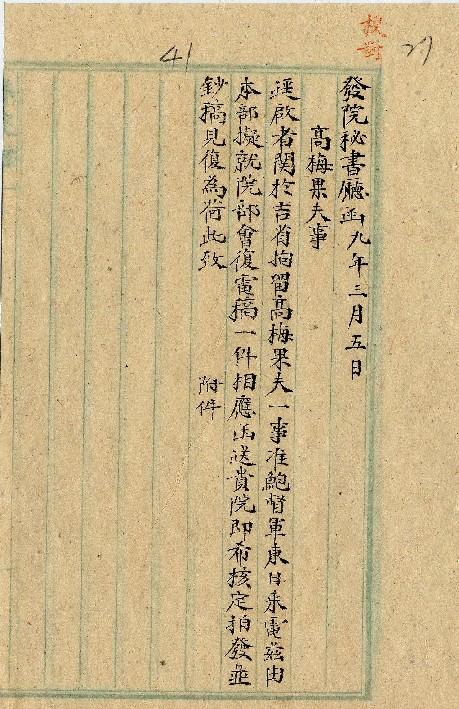 27
校對
41
發院秘書廳函九年三月五日
高梅果夫事
逕啟者関於吉省拘留高梅果夫一事准鮑督軍東日來電茲由
本部擬就院部會復電稿一件相應函送貴院即希核定拍發並
鈔稿見復為荷此致　附件